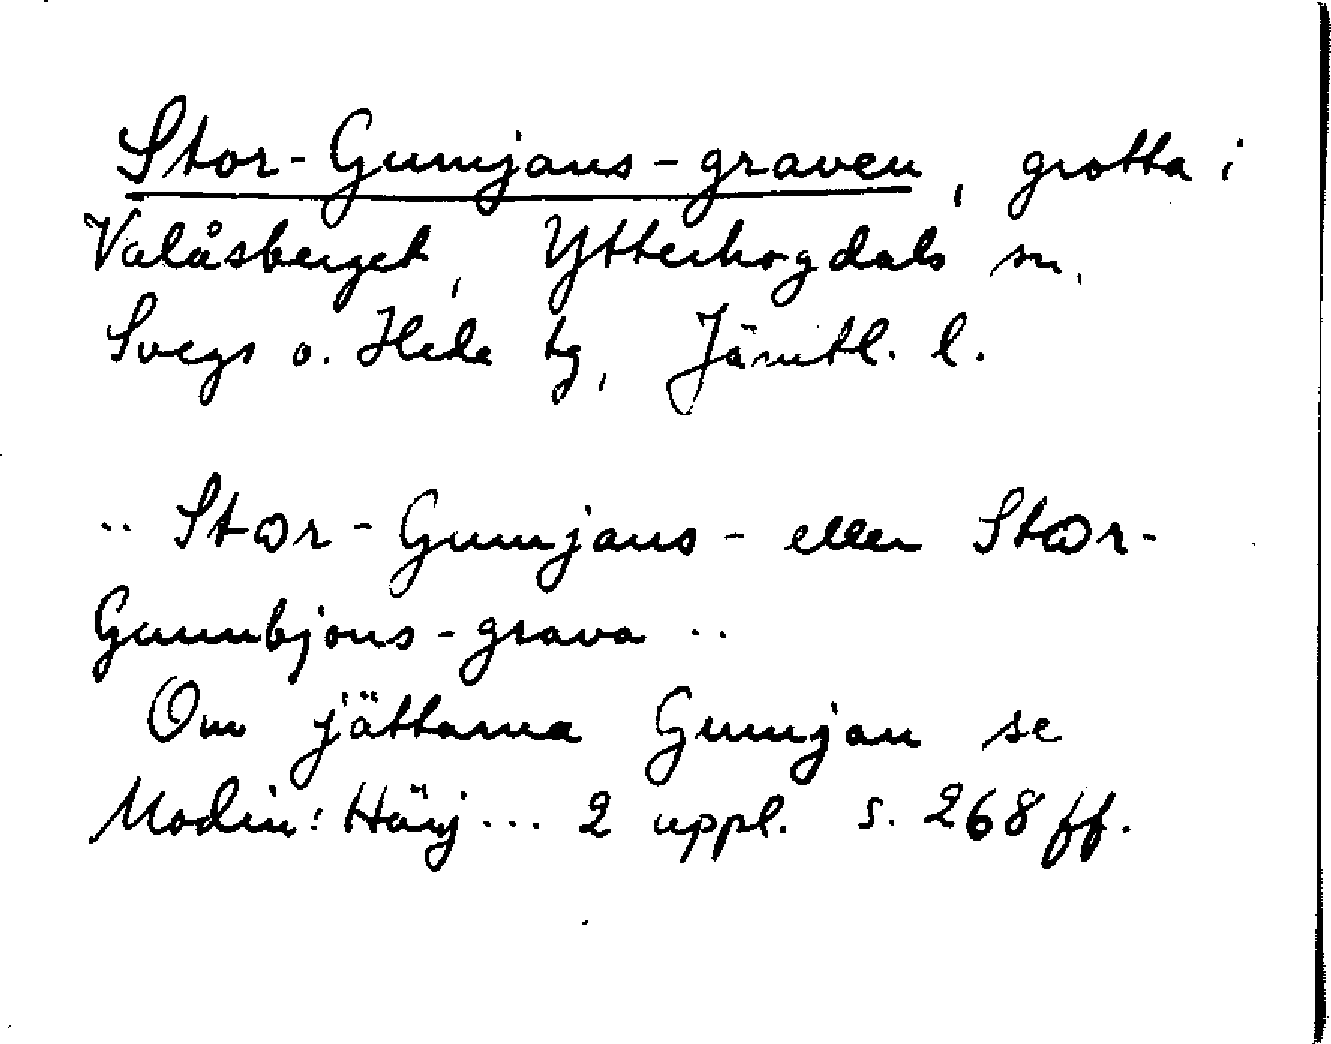 Stor-Gumjans-graven, grotta i
Valåsberget, Ytterhogdals sn,
Svegs o. Hede tg, Jämtl. l.
.. Stor-Gumjans- eller Stor-
Gunnbjons-grava ..
Om jättarna Gumjan se
Modin: Härj... 2 uppl. s. 268 ff.